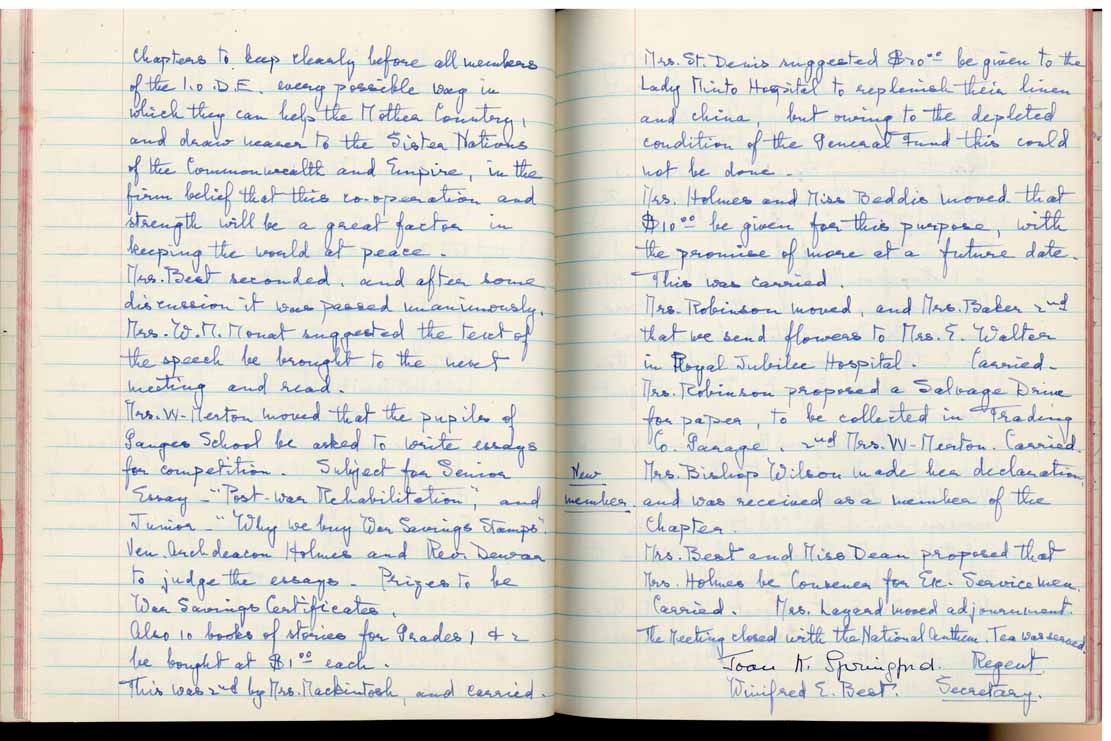 chapters to keep clearly before all members
of the I.O.D.E. every possible way in
which they can help the Mother Country,
and draw nearer to the Sister Nations
of the Commonwealth and Empire, in the
firm belief that this co-operation and
strength will be a great factor in
keeping the world at peace.
Mrs. Best seconded, and after some
discussion it was passed unanimously.
Mrs. W.M. Mouat suggested the text of
the speech be brought to the next
meeting and read.
Mrs. W-Merton moved that the pupils of
Ganges School be asked to write essays
for competition. Subject for Senior
Essay – "Post-war Rehabilitation", and
Junior – "Why we buy War Savings Stamps".
Ven. Archdeacon Holmes and Rev. Dewar
to judge the essays – Prizes to be
War Savings Certificates.
Also 10 books of stories for Grades 1 & 2
be bought at $1.00 each.
This was 2nd by Mrs. Mackintosh, and carried.
Mrs. St. Denis suggested $20.00 be given to the
Lady Minto Hospital to replenish their linen
and china, but owing to the depleted
condition of the General Fund this could
not be done.
Mrs. Holmes and Miss Beddis moved that
$10.00 be given for this purpose, with
the promise of more at a future date.
This was carried.
Mrs. Robinson moved, and Mrs. Baker 2nd
that we send flowers to Mrs. E. Walter
in Royal Jubilee Hospital. Carried.
Mrs. Robinson proposed a Salvage Drive
for paper, to be collected in Trading
Co. Garage. 2nd Mrs. W-Merton. Carried.
New
member.
Mrs. Bishop Wilson made her declaration,
and was received as a member of the
Chapter.
Mrs. Best and Miss Dean proposed that
Mrs. Holmes be Convener for Ex. Service men.
Carried. Mrs. Layard moved adjournment.
The Meeting closed with the National Anthem. Tea was served.
Joan N. Springford. Regent
Winifred E. Best. Secretary.